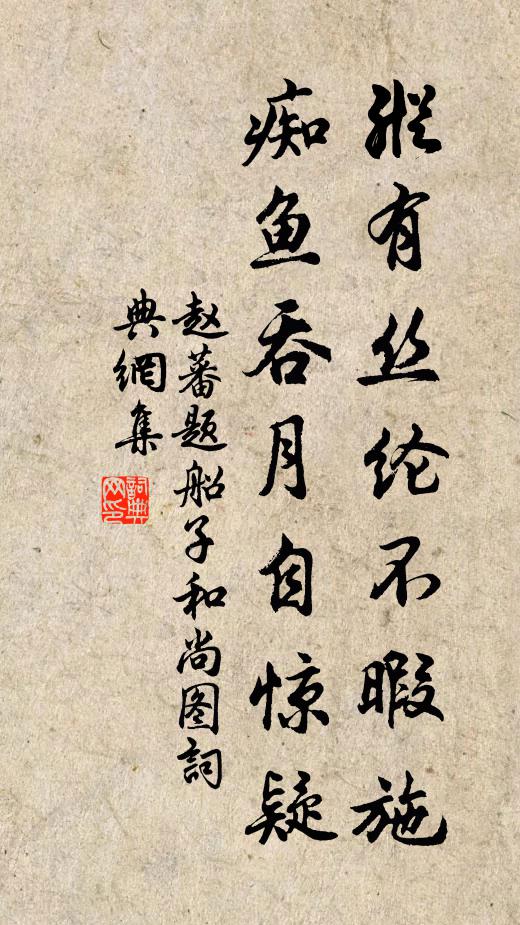 纵有丝纶不暇施
痴鱼吞月自惊疑
赵蕃题船子和尚图词
典網集
詞典
网印